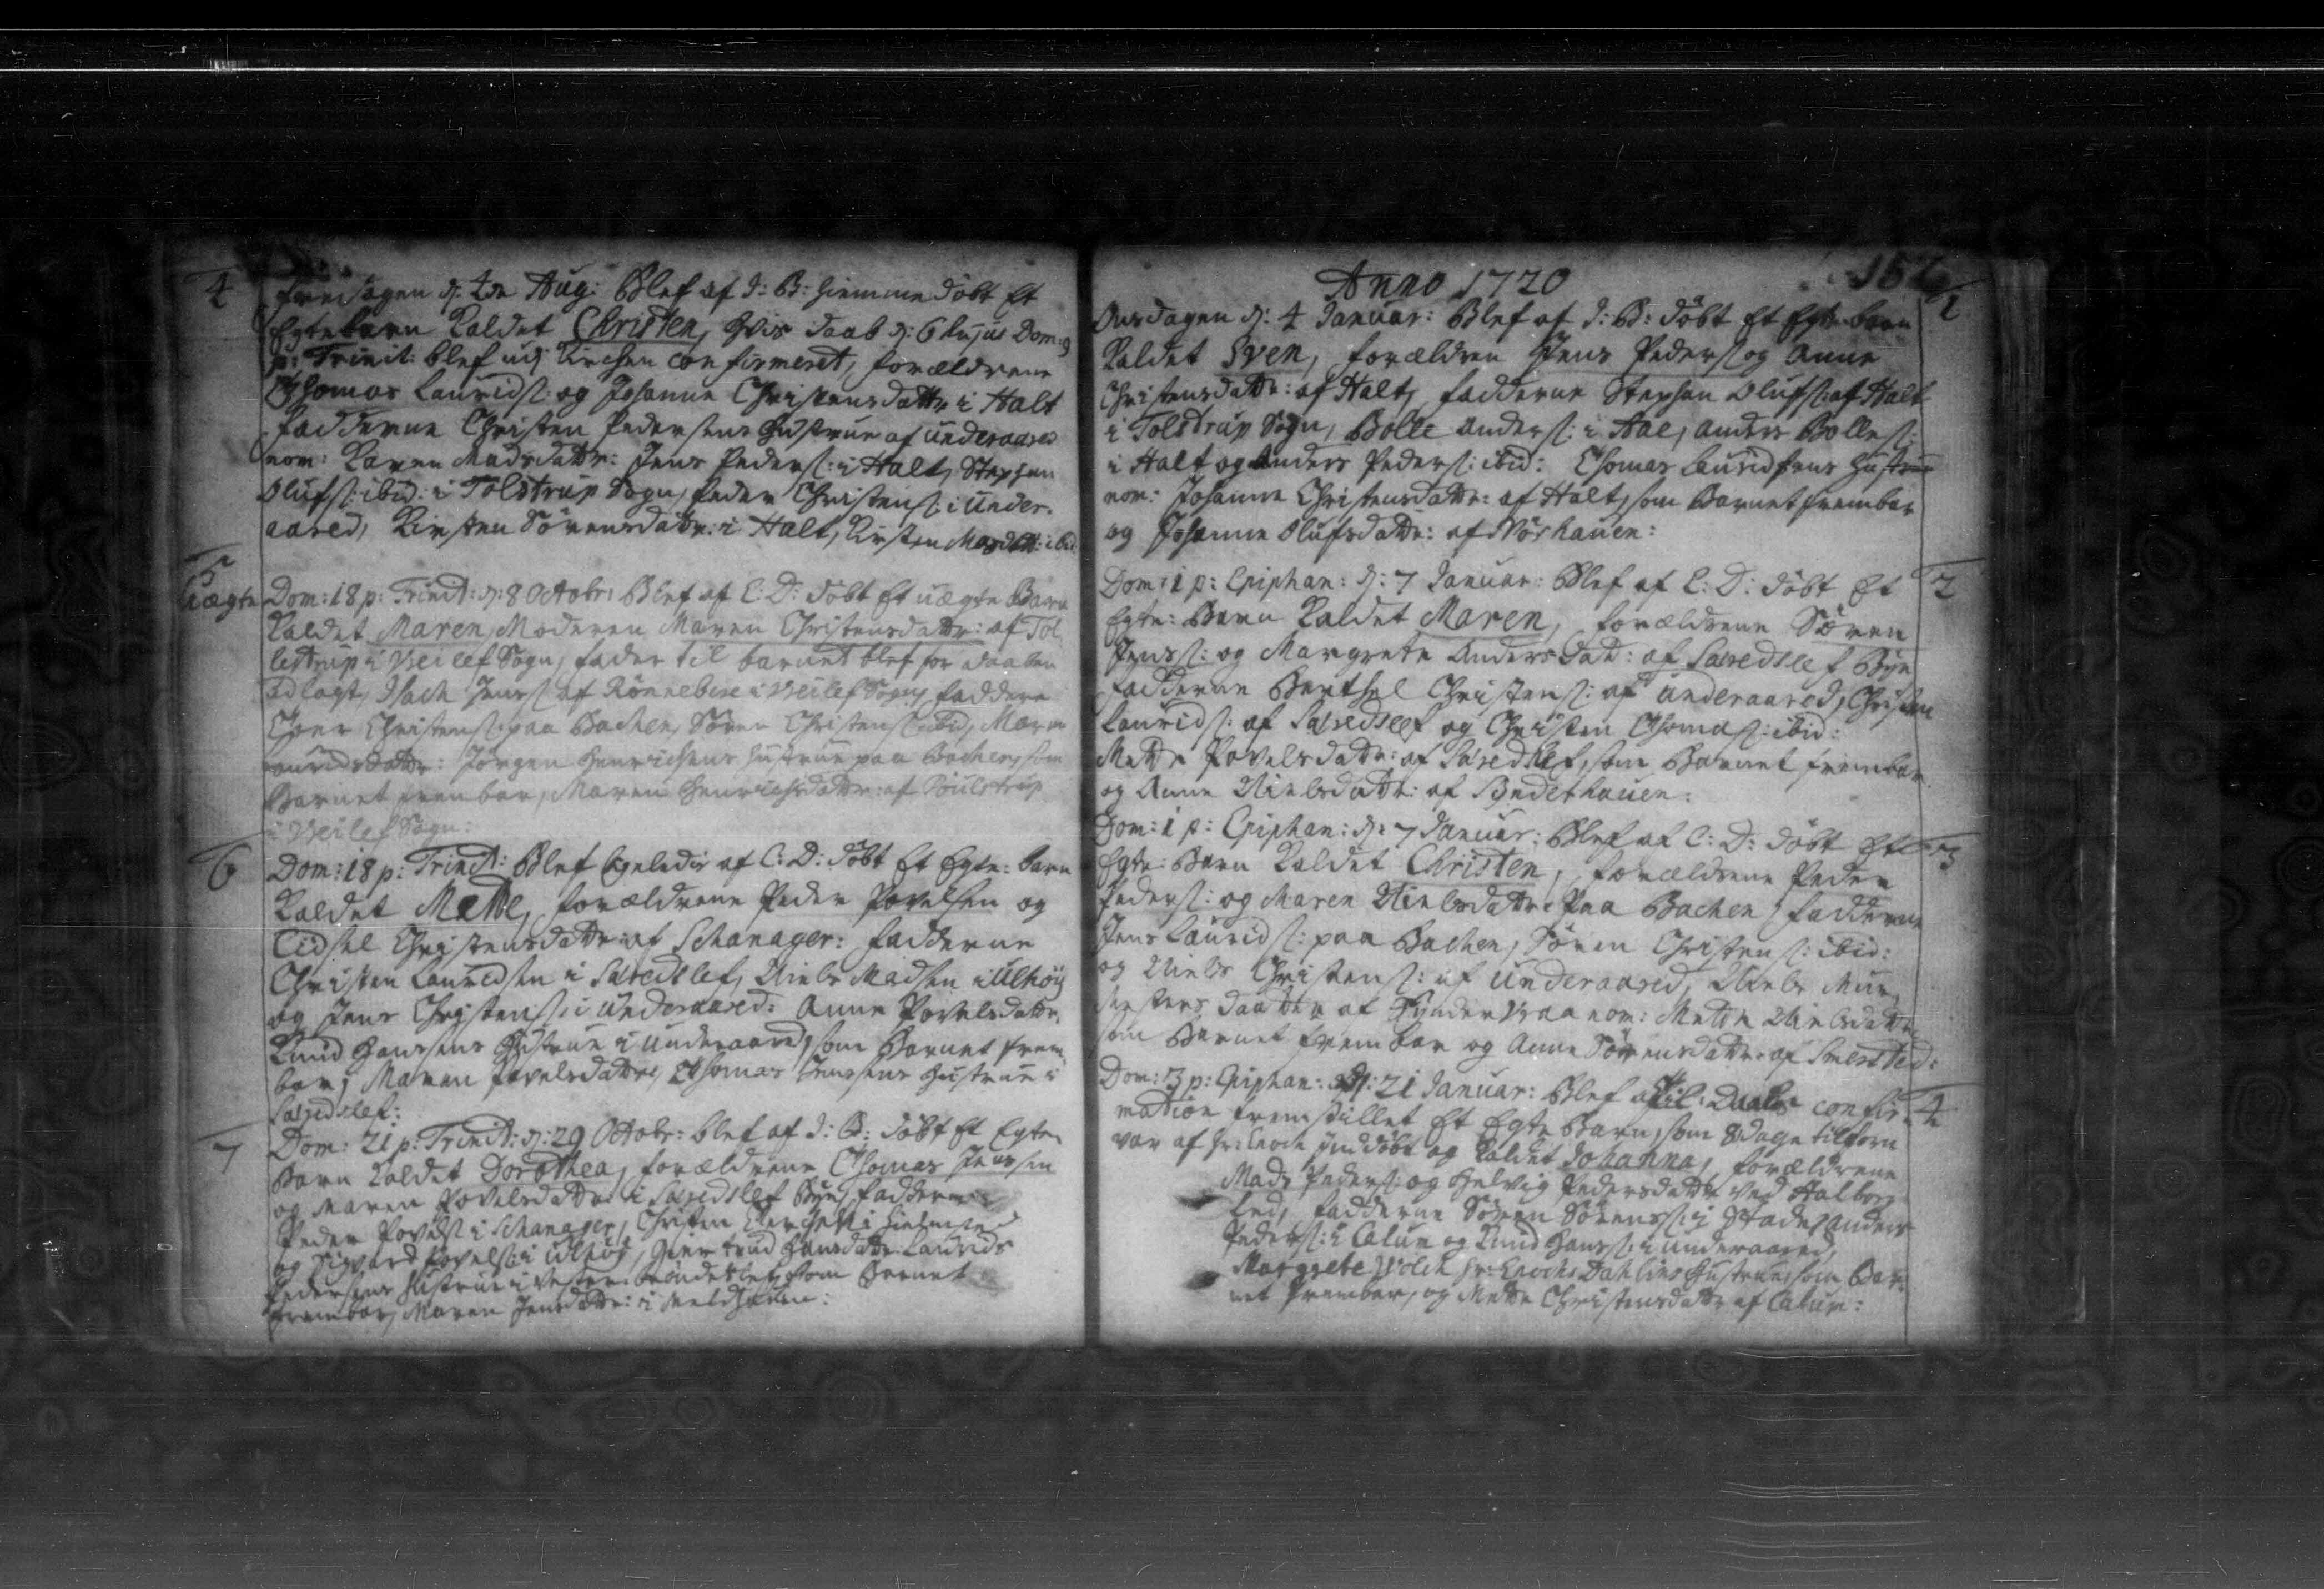 4
Fredagen d: 4de Aug: Blef af J: B: hiemme døbt Et
Egte barn Kaldet Christen, hvis daab d: 6 hujus Dom: 9
p: Trinit: blef udj Kirchen confirmeret, forældrene
Thomas Lauridß: og Johanne Christensdattr i Halt
fadderne Christen Pedersens Hustrue af Underaared
nom: Karen Madsdattr: Jens Pederß: i Halt, Stephen
Olufß: ibid: i Tolstrup Sogn, Peder Christenß: i Under-
aared, Kirsten Sørensdattr: i Halt, Kirsten ibid
5
uægte
Dom: 18 p: Trinit: d: 8 Octobr: Blef af E: D: døbt Et uægte Barn
Kaldet Maren, Moderen Maren Christensdattr: af Tol
lestrup i Veilef Sogn, fader til barnet blef for daaben
udlagt, Isach Jenß: af Rønnebere i Veilef Sogn, faddere
Christenß: paa Bachen, Søren Christenß: ibid, Maren
Lauridsdattr: Jørgen Henrichsens Hustrue paa Bachen, som
Barnet frembar, Maren Henrichsdattr: af
i Veilef Sogn:
6
Dom: 18 p: Trinit: Blef ligeledis af E: D: døbt Et Egte: barn
Kaldet Mette, forældrene Peder Povelsen og
Cidsel Christensdattr: af Schanager: fadderne
Christen Lauridsen i Saredslef, Niels Madsen i Ulhøy
og Jens Christenß: i Underaared: Anne Povelsdattr,
Knud Hansens Hustrue i Underaared, som Barnet frem-
bar, Maren Povelsdattr, Thomas Jensens Hustrue i
Saredslef:
7
Dom: 21 p: Trinit: d: 29 Octobr: blef af J: B: døbt Et Egte
Barn Kaldet Dorothea, forældrene Thomas Jensen
og Maren Povelsdattr i Saredslef Bye, fadderne
Peder Povelß i Schanager, Christen i
og Sigvard Povelß: i Ulhøy, Giertrud Hansdattr Laurids
Pedersens Hustrue i Vester som Barnet
frembar, Maren Jensdattr: i
152
Anno 1720
1
Onsdagen d: 4 Januar: Blef af J: B: døbt Et Egte barn
Kaldet Sven, forældren Jens Pederß og Anne
Christensdattr: af Halt, fadderne Stephen Olufß: af Halt
i Tolstrup Sogn, Bolle Anderß: i Aae, Anders Bolleß:
i Halt og Anders Pederß: ibid: Thomas Lauridsens Hustrue
nom: Johanne Christensdattr: af Halt, som Barnet frembar
og Johanne Olufsdattr: af Nørhauen:
2
Dom: 1 p: Epiphan: d: 7 Januar: Blef af E: D: døbt Et
Egte: Barn Kaldet Maren, forældrene Søren
Jensß: og Margrete Andersdatt: af Saredslef Bye
fadderne Berthel Christenß: af Underaared, Christen
Lauridß: af Saredslef og Christen Thomaß: ibid:
Mette Povelsdattr: af Saredslef, som Barnet frembar
og Anne Nielsdattr: af Synderhauen:
3
Dom: 1 p: Epiphan: d: 7 Januar: Blef af E: D: døbt Et
Egte: Barn Kaldet Christen, forældrene Peder
Pederß: og Maren Nielsdattr: Paa Bachen, fadderne
Jens Lauridß: paa Bachen, Søren Christenß: ibid:
og Niels Christenß: af Underaared, Niels
daatter af Synder nom: Mette Nielsdattr
som Barnet frembar og Anne Sørensdattr: af
4
Dom: 3 p: Epiphan: d: 21 Januar: Blef til Daabs confir-
mation fremstillet Et Egte Barn, som 8 dage tilforn
var af Hr: Enoch hiemdøbt og Kaldet Johanna, forældrene
Mads Pederß: og Helvig Pedersdattr ved Aalborg
Led, fadderne Søren Sørenß: i Stade, Anders
Pederß: i Calum og Knud Hansß: i Underaared,
Margrete Hr: Enochs Dahlins Hustrue, som Bar-
net frembar, og Mette Christensdattr af Calum: